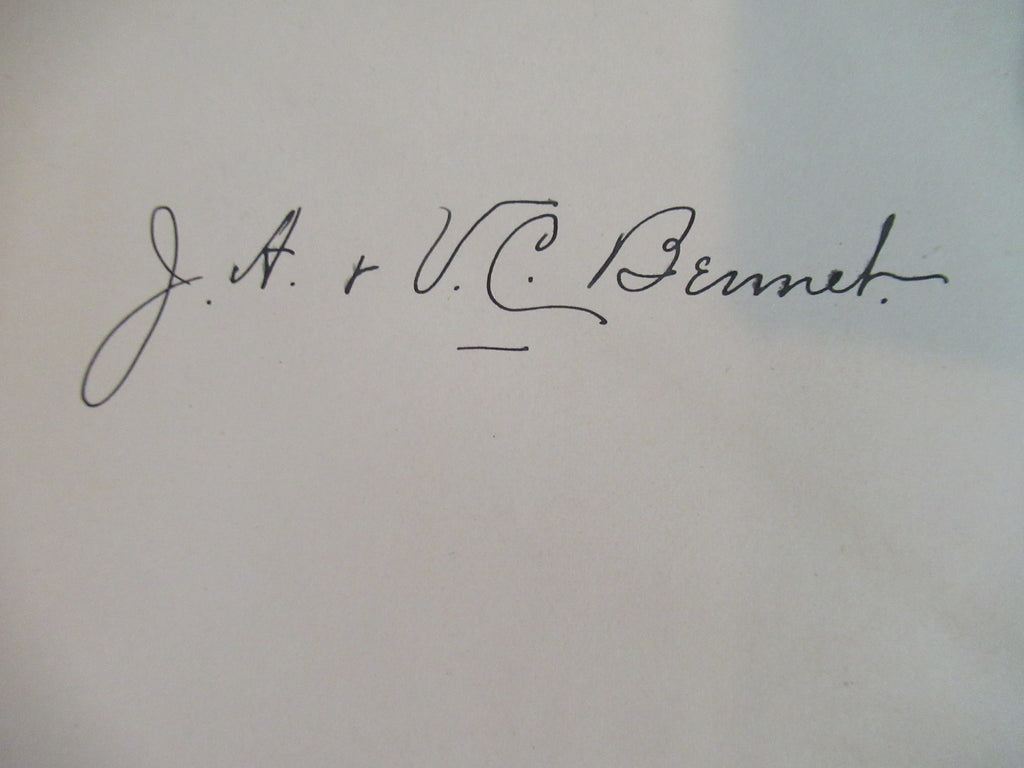 J. A. & V. C. Bennet.